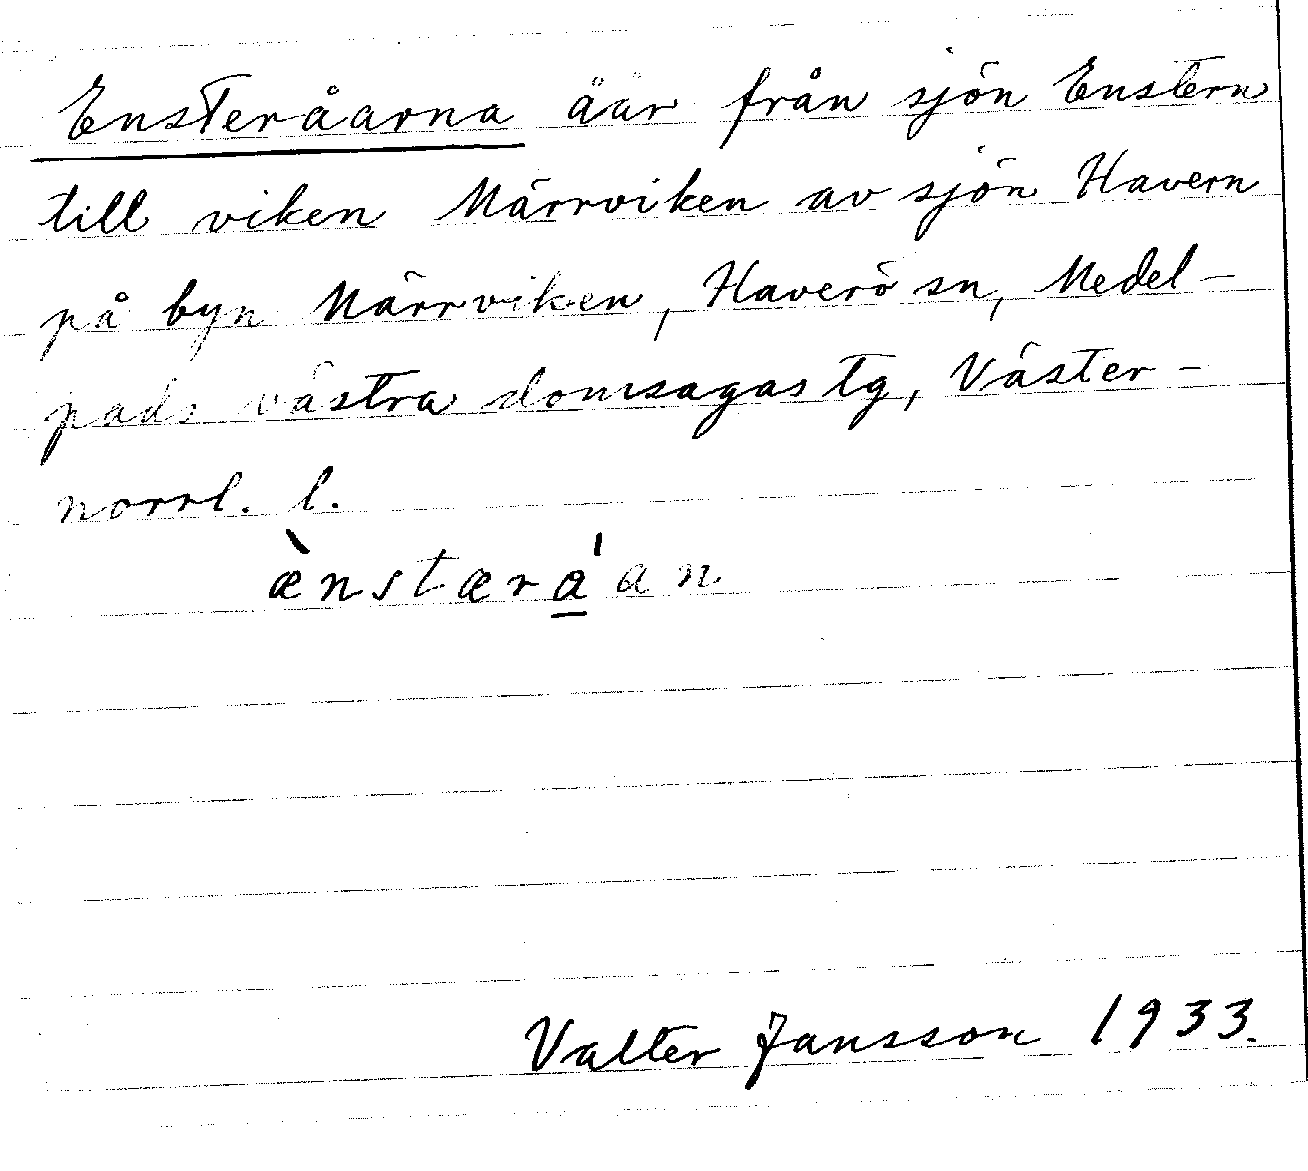 Ensteråarna åar från sjön Enstern
till viken Märrviken av sjön Havern
på byn Märrviken, Haverö sn, Medel-
pads västra domsagas tg, Väster-
norrl. l.
æ̀nstæra̱̍an
Valter Jansson 1933.